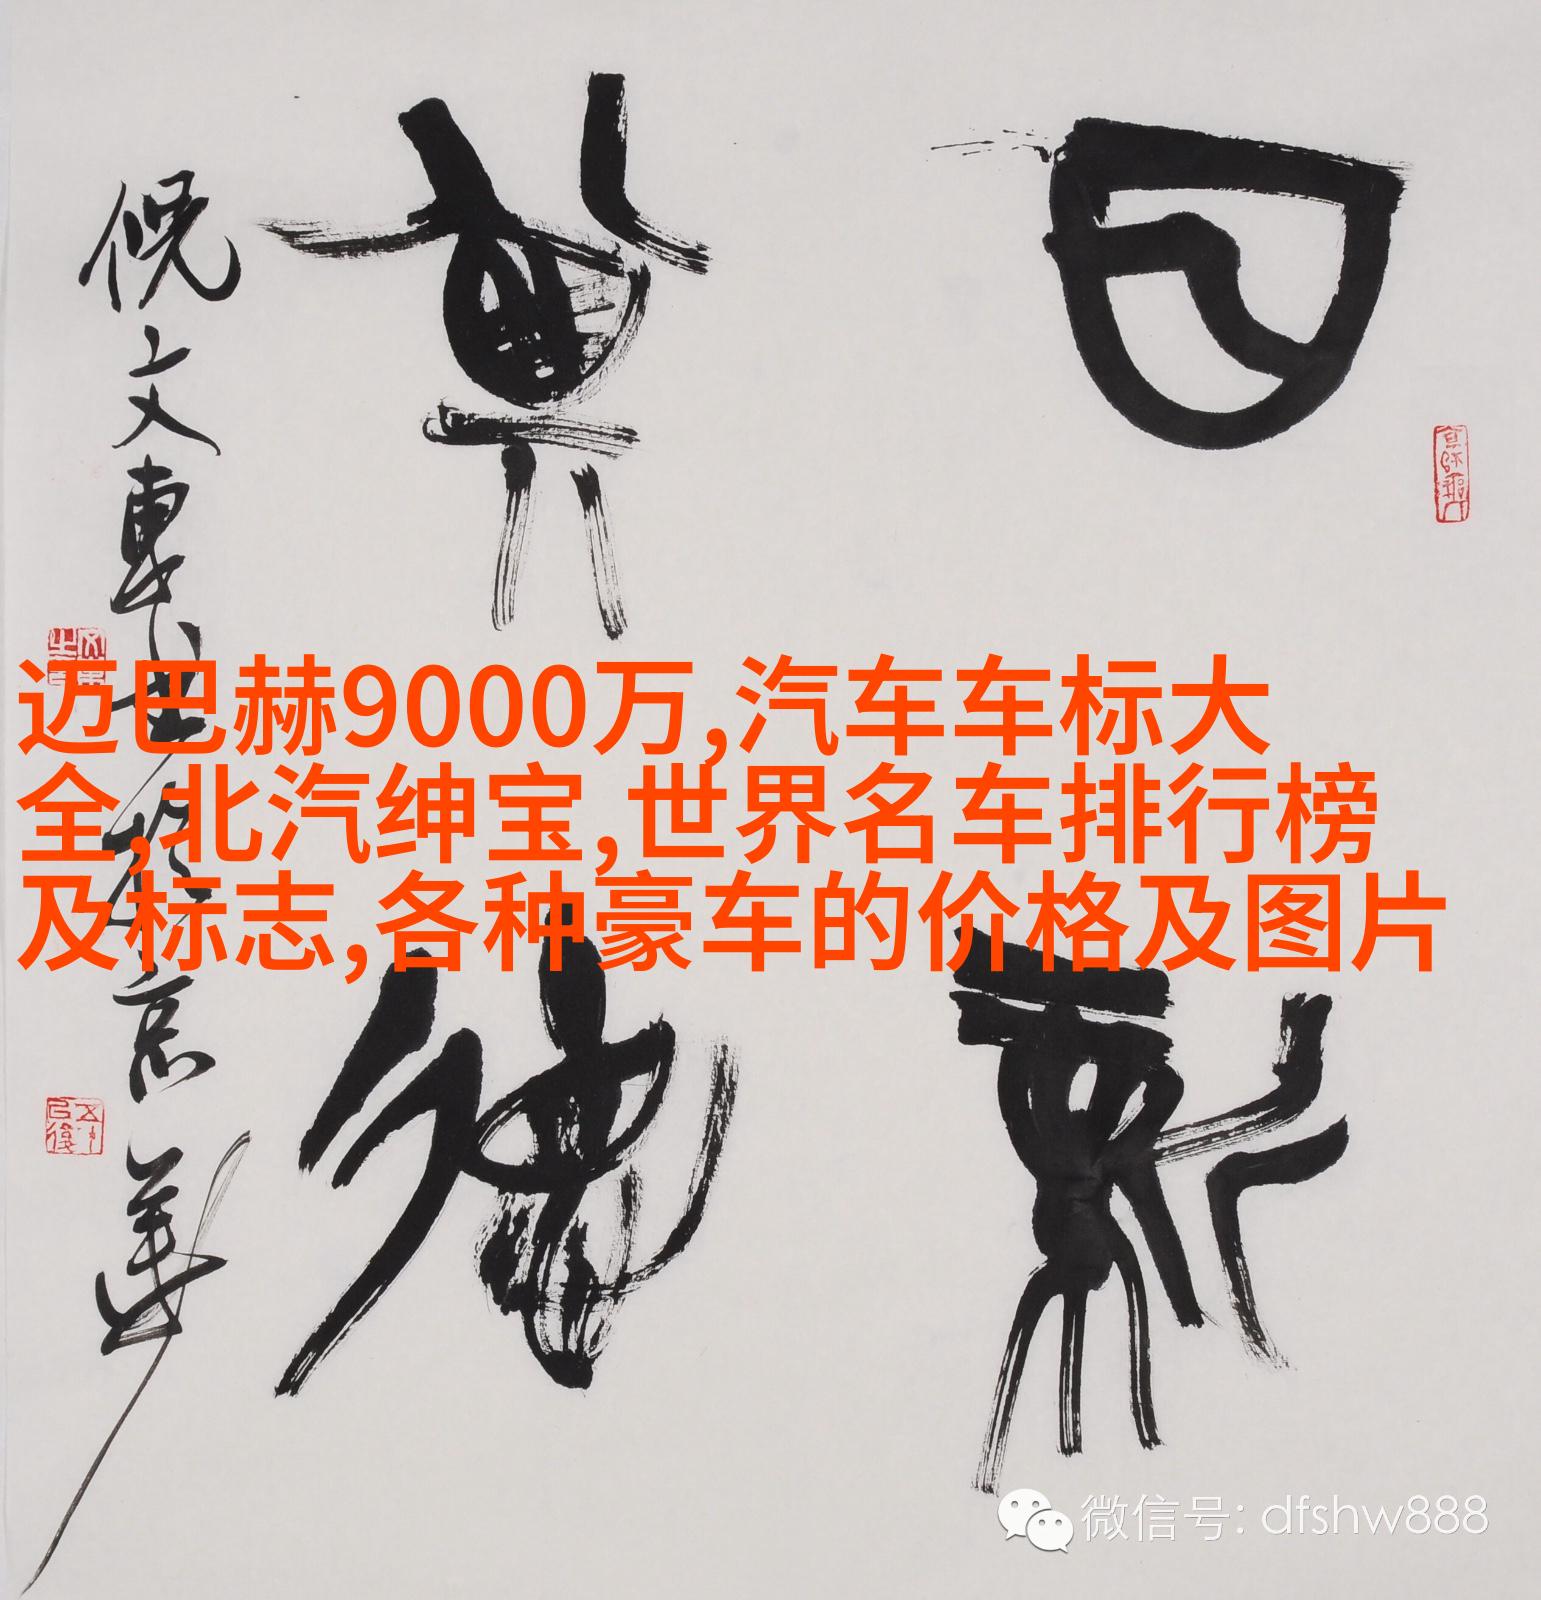 日新其德
倪文東书於京華
迈巴赫9000万,汽车车标大
全,北汽绅宝,世界名车排行榜
及标志,各种豪车的价格及图片
微信号: dfshw888